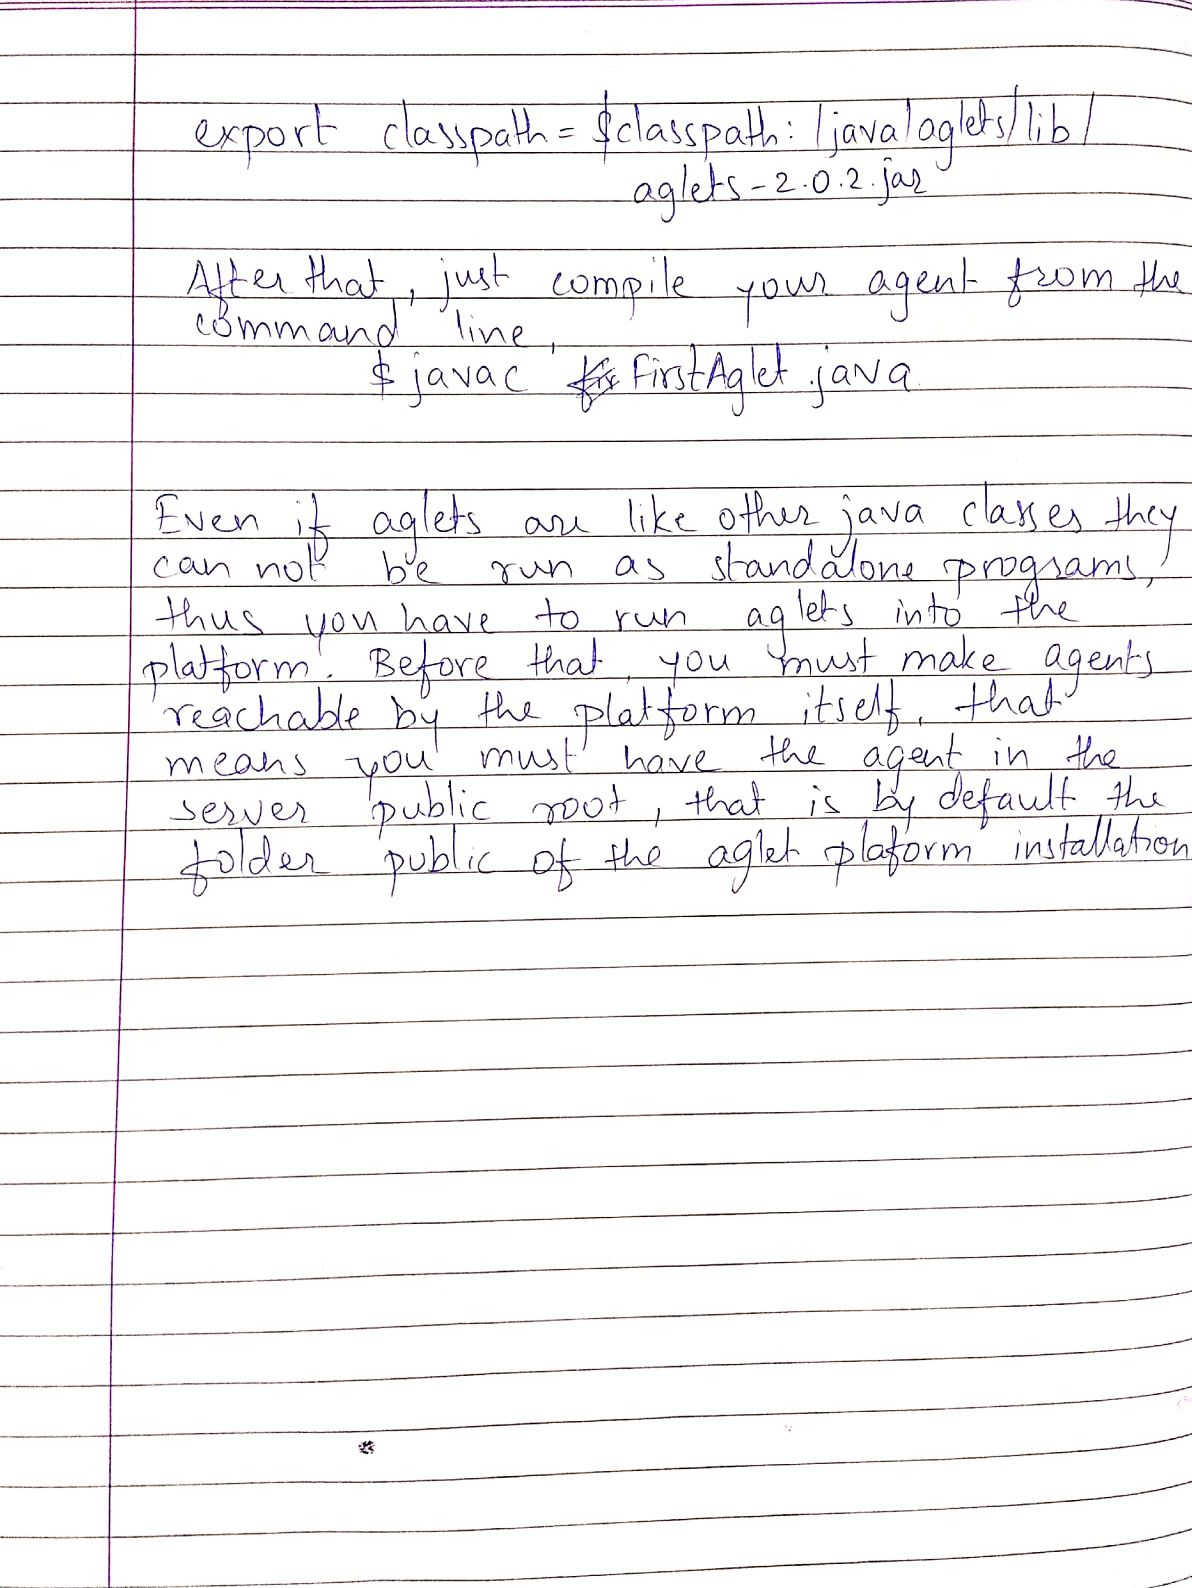 export classpath = $classpath: /java/aglets/lib/
aglets-2.0.2.jar
After that, just compile your agent from the
command line,
$ javac FirstAglet.java
Even if aglets are like other java classes they
can not be run as standalone programs,
thus you have to run aglets into the
platform. Before that, you must make agents
reachable by the platform itself, that
means you must have the agent in the
server public root, that is by default the
folder public of the aglet plaform installation